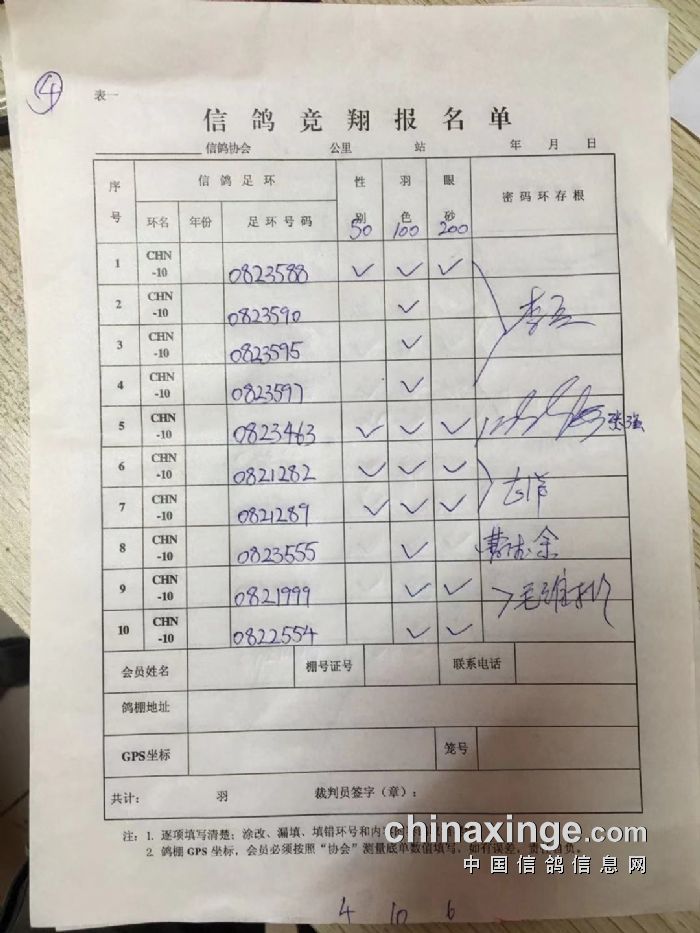 ④
表一
信鸽竞翔报名单
信鸽协会 公里 站 年 月 日
序号 信鸽足环 性别 羽色 眼砂 密码环存根
环名 年份 足环号码 50 100 200
1 CHN-10 0823588 ✓ ✓ ✓
2 CHN-10 0823590 ✓
3 CHN-10 0823595 ✓
4 CHN-10 0823597 ✓
5 CHN-10 0823463 ✓ ✓ ✓ 张强
6 CHN-10 0821282 ✓ ✓ ✓
7 CHN-10 0821289 ✓ ✓ ✓
8 CHN-10 0823555 ✓
9 CHN-10 0821999 ✓ ✓
10 CHN-10 0822554 ✓ ✓
会员姓名 棚号证号 联系电话
鸽棚地址
GPS坐标 笼号
共计: 羽 裁判员签字（章）:
注: 1. 逐项填写清楚; 涂改、漏填、填错环号和内
2. 鸽棚 GPS 坐标, 会员必须按照“协会”测量底单数值填写, 如有误差, 责任自负。
chinaxinge.com
中国信鸽信息网
4 10 6